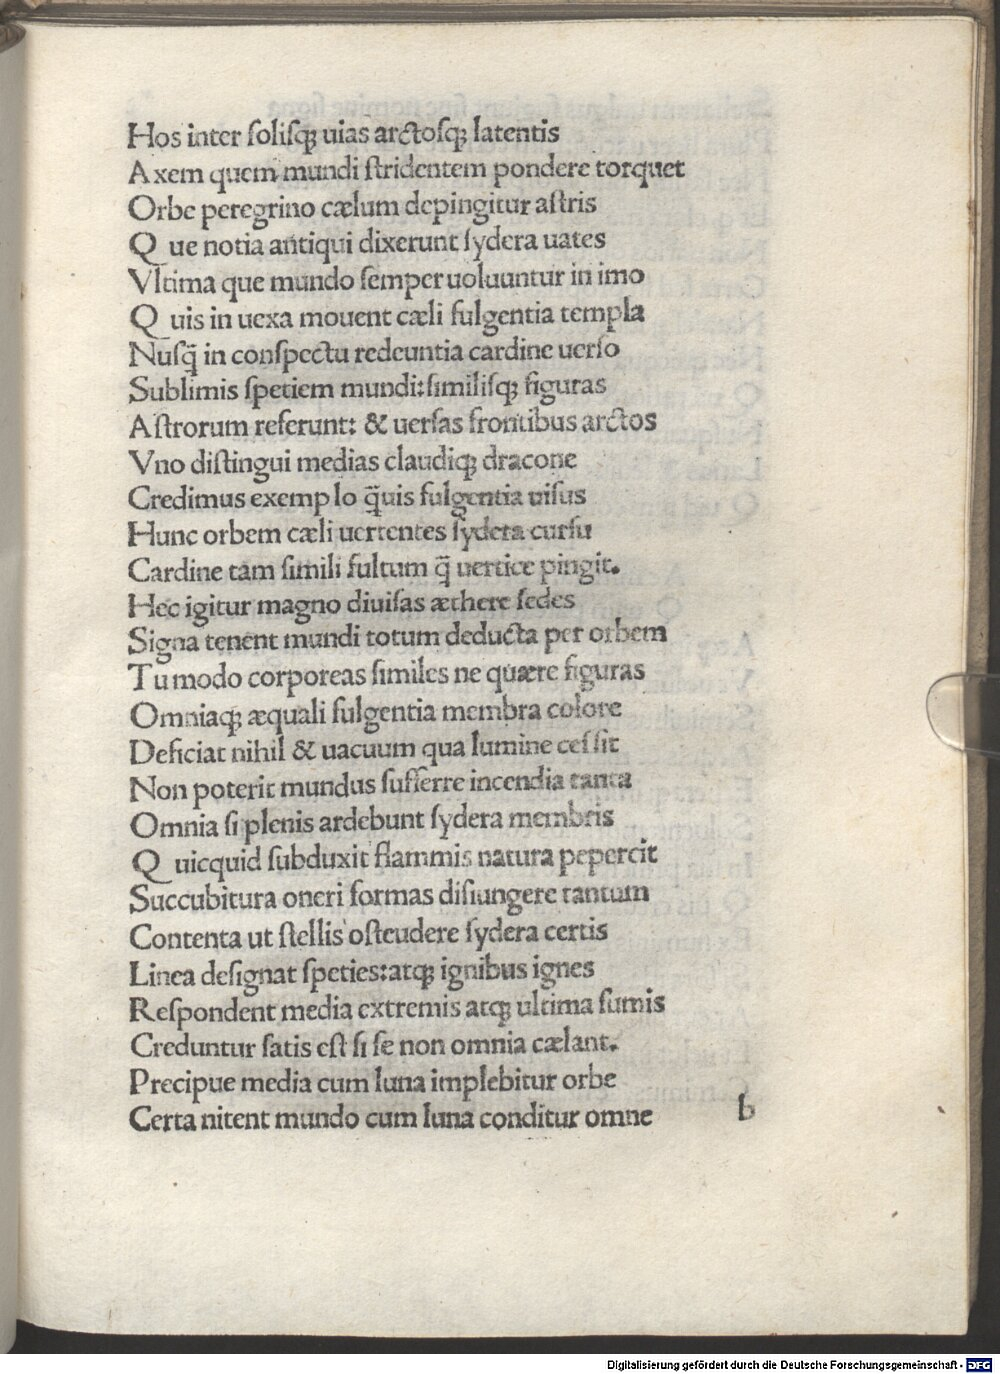 Hos inter ſoliſqꝫ uias arctoſqꝫ latentis
Axem quem mundi ſtridentem pondere torquet
Orbe peregrino cælum depingitur aſtris
Q ue notia antiqui dixerunt ſydera uates
Vltima que mundo ſemper uoluuntur in imo
Q uis in uexa mouent cæli fulgentia templa
Nuſq̃ in conſpectu redeuntia cardine uerſo
Sublimis ſpetiem mundi: ſimiliſqꝫ figuras
Aſtrorum referunt: & uerſas frontibus arctos
Vno diſtingui medias claudiqꝫ dracone
Credimus exemplo q̃uis fulgentia uiſus
Hunc orbem cæli uertentes ſydera curſu
Cardine tam ſimili fultum q̃ uertice pingit.
Hec igitur magno diuiſas æthere ſedes
Signa tenent mundi totum deducta per orbem
Tu modo corporeas ſimiles ne quære figuras
Omniaqꝫ æquali fulgentia membra colore
Deficiat nihil & uacuum qua lumine ceſſit
Non poterit mundus ſufferre incendia tanta
Omnia ſi plenis ardebunt ſydera membris
Q uicquid ſubduxit flammis natura pepercit
Succubitura oneri formas diſiungere tantum
Contenta ut ſtellis oſteudere ſydera certis
Linea deſignat ſpeties: atqꝫ ignibus ignes
Reſpondent media extremis atqꝫ ultima ſumis
Creduntur ſatis eſt ſi ſe non omnia cælant.
Precipue media cum luna implebitur orbe
Certa nitent mundo cum luna conditur omne
b
Digitalisierung gefördert durch die Deutsche Forschungsgemeinschaft - DFG